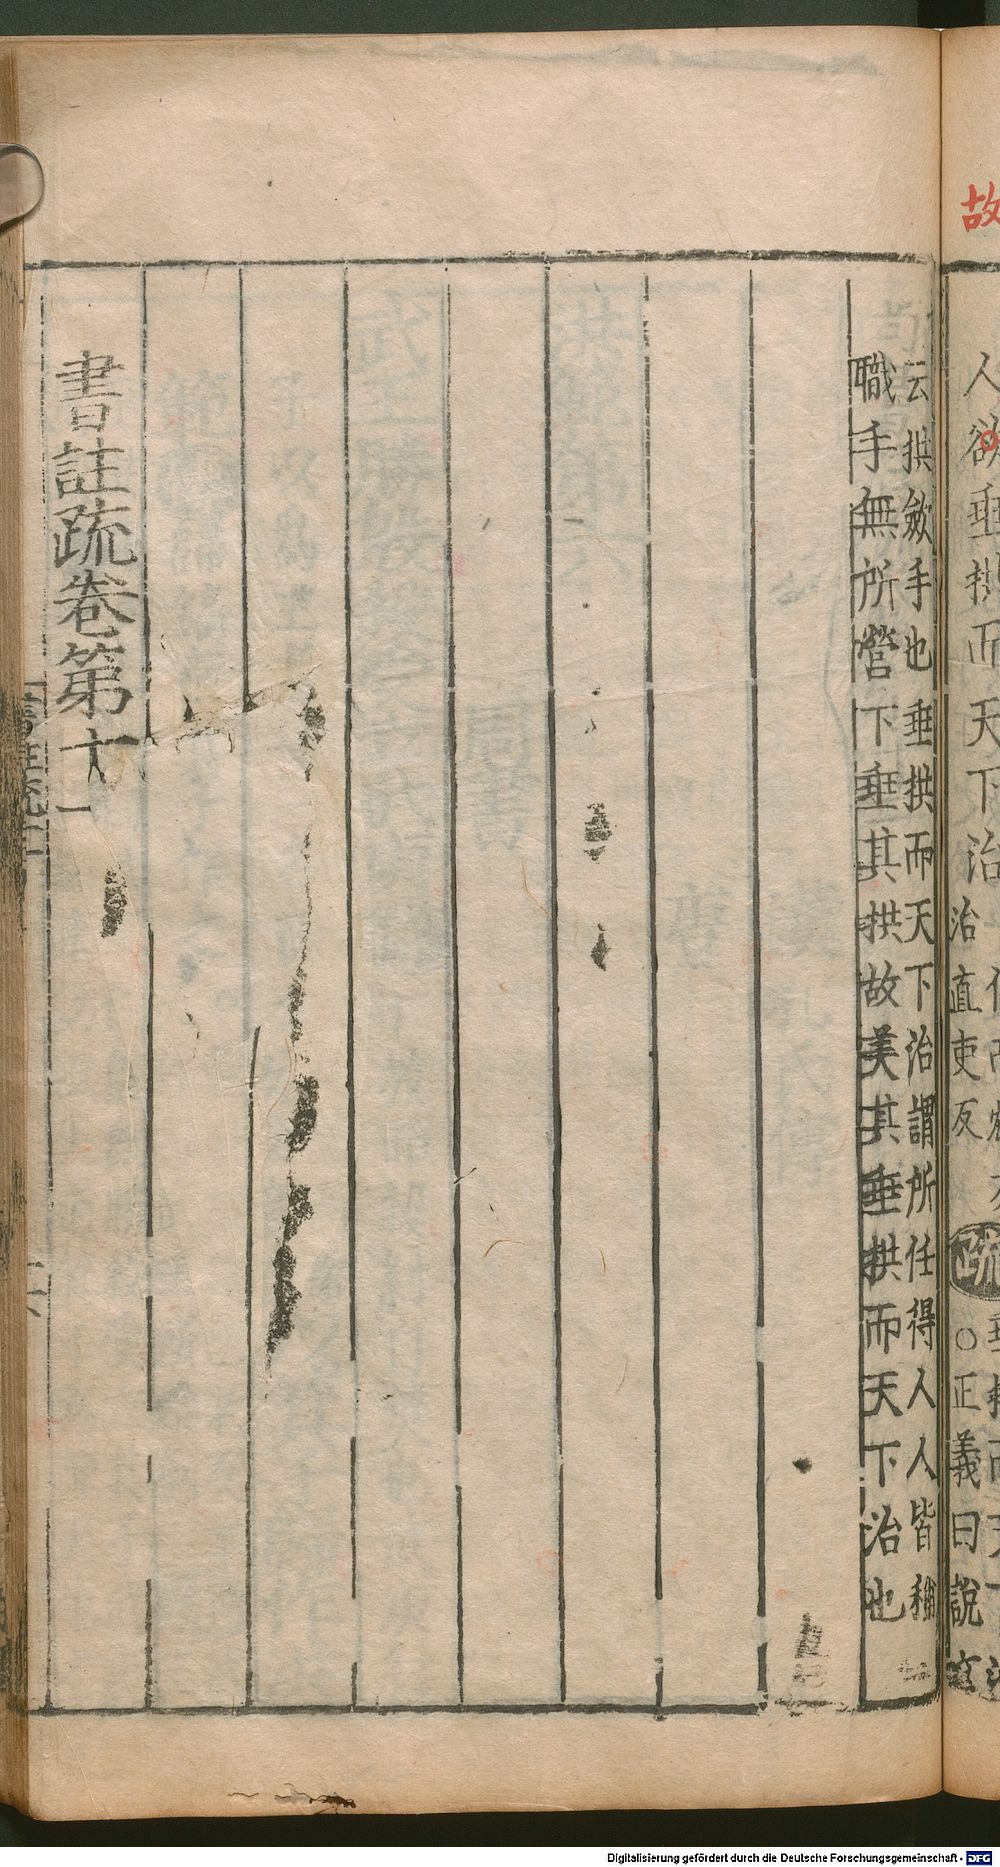 故
人欲垂拱而天下治
治直吏反
疏
○正義曰說文
云拱斂手也垂拱而天下治謂所任得人人皆稱
職手無所營下垂其拱故美其垂拱而天下治也
書註疏卷第十一
Digitalisierung gefördert durch die Deutsche Forschungsgemeinschaft - DFG